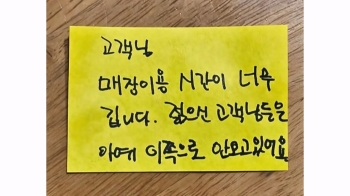 고객님
매장이용 시간이 너무
깁니다. 젊으신 고객님들은
아예 이쪽으로 안오고있어요